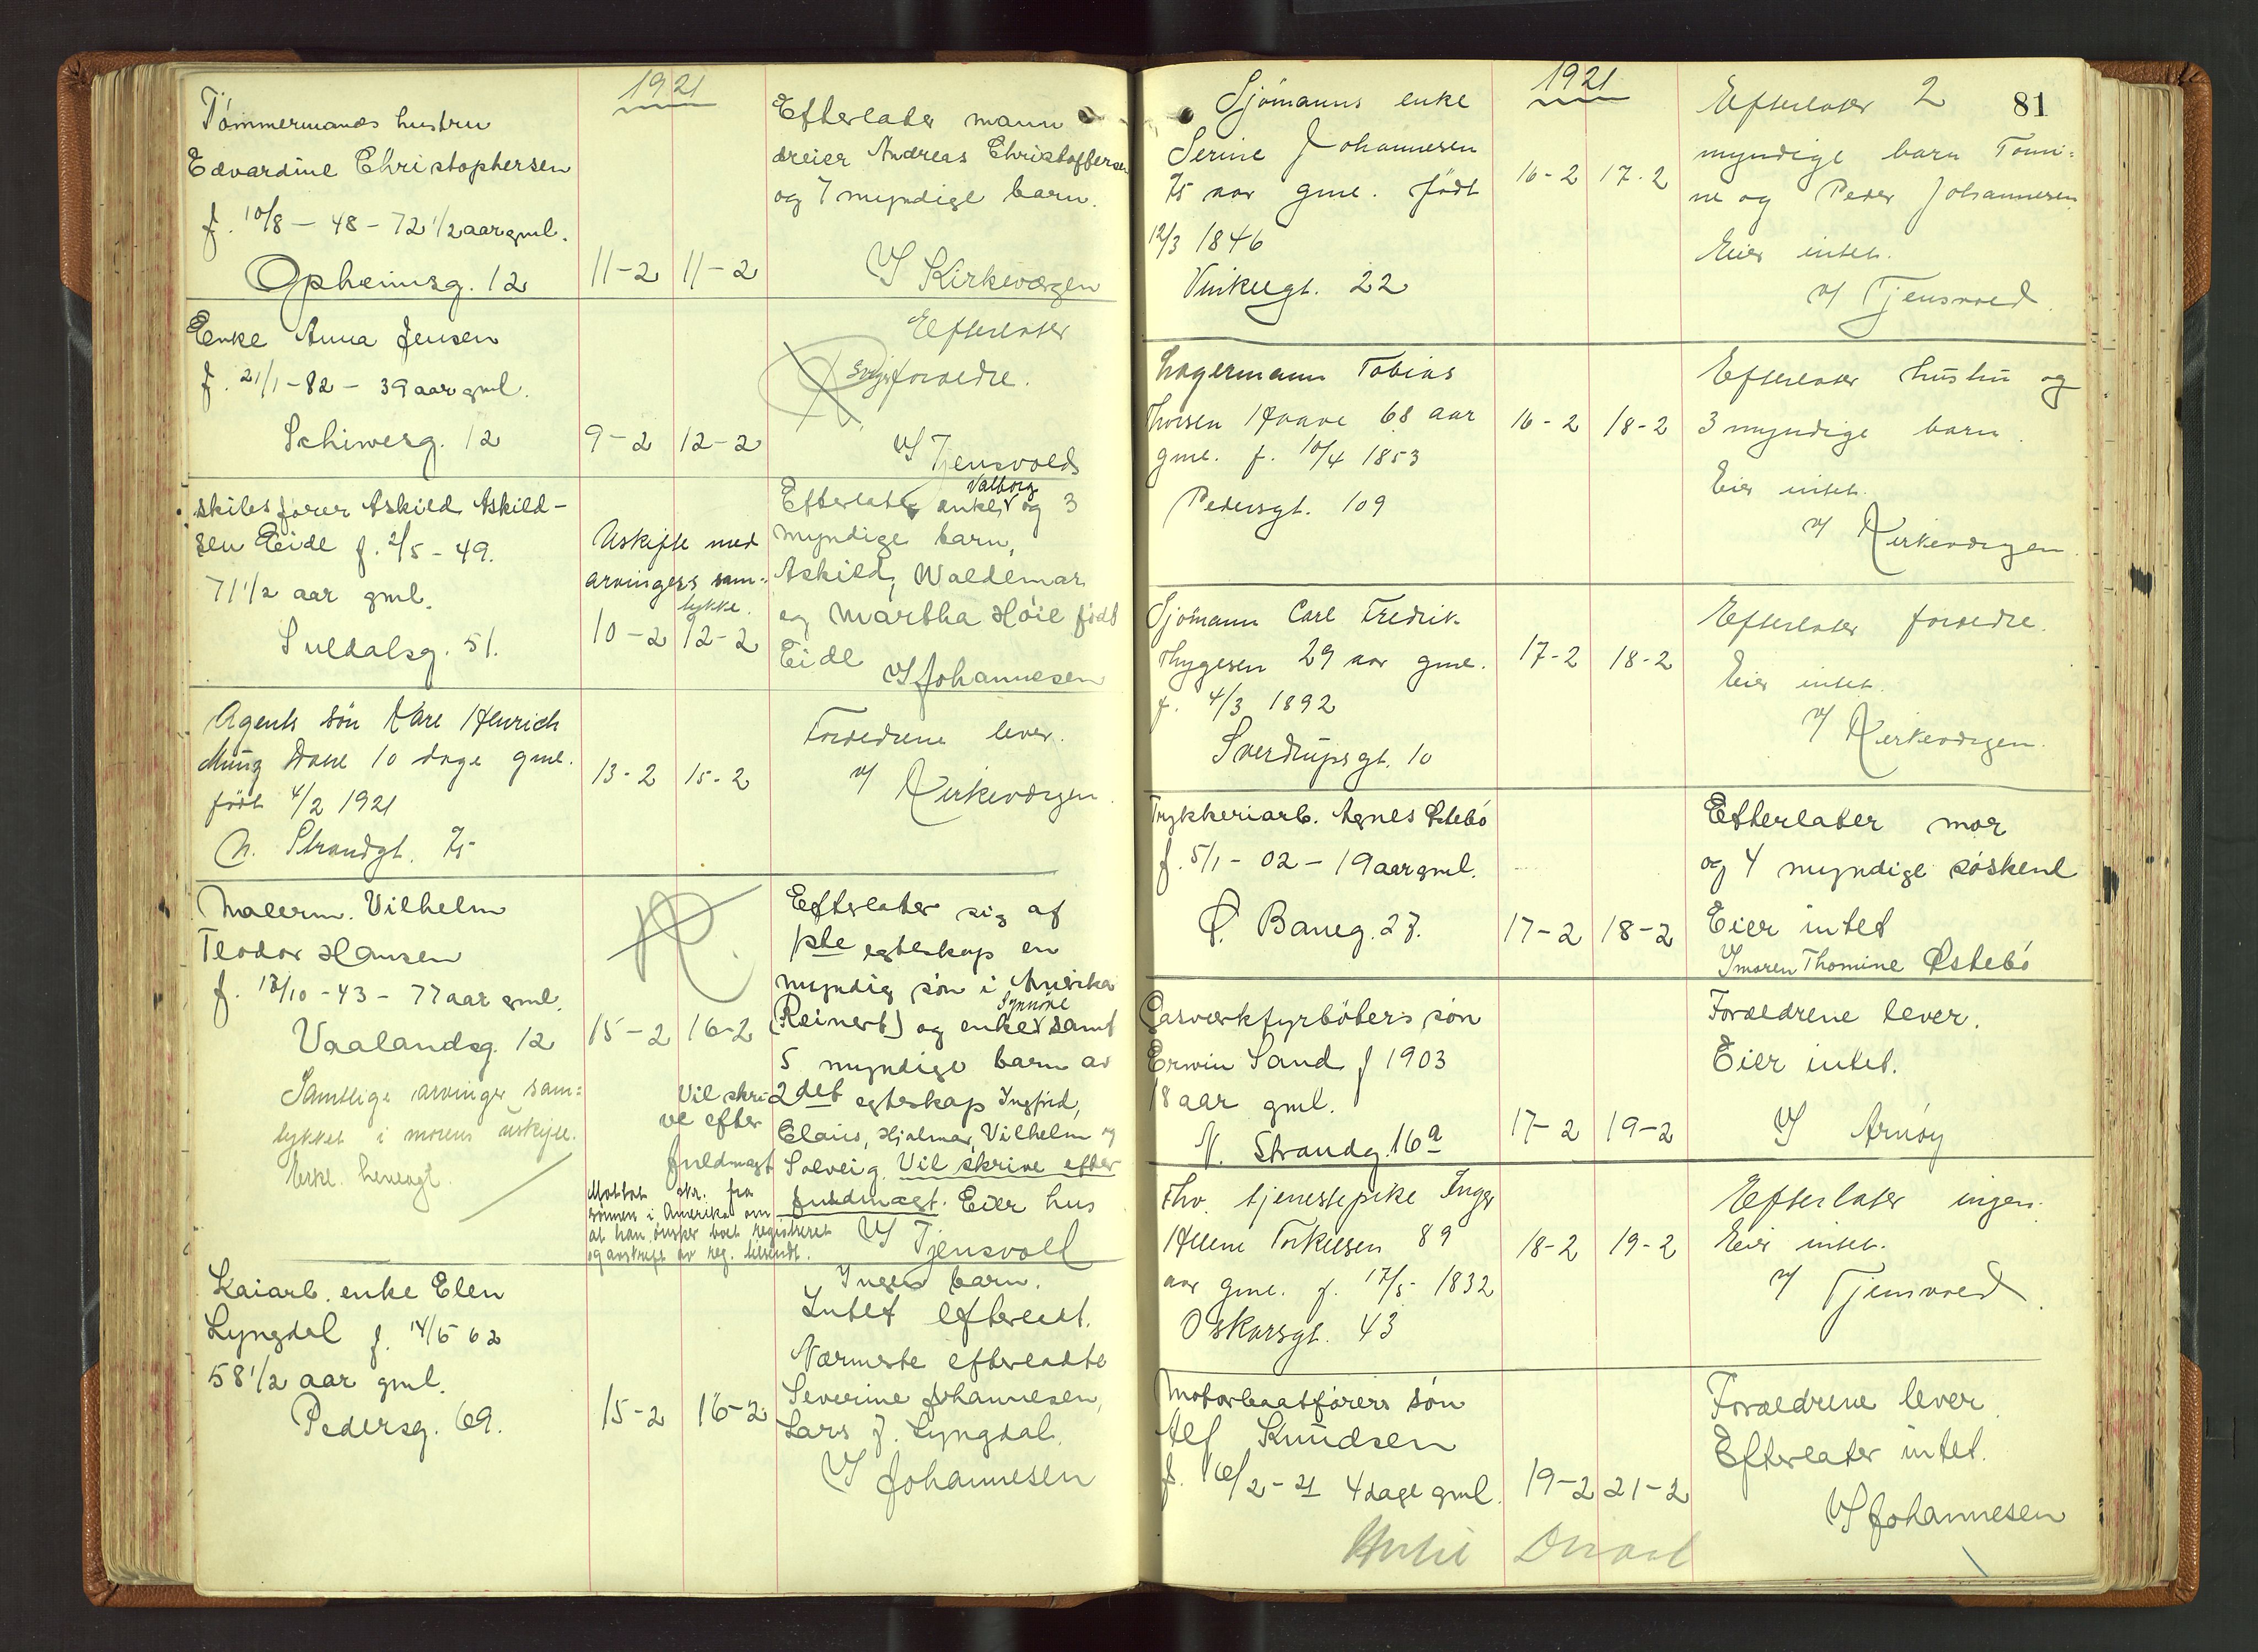 1921
Tömmermands hustru
Edvardine Christophersen
f. 10/8 - 48 - 72 1/2 aar gml.
Opheimsg. 12
11-2 11-2
Efterlater mann
dreier Andreas Christoffersen
og 7 myndige barn.
V/ Kirkeværgen
Enke Anna Jensen
f. 21/1 - 82 - 39 aar gml.
Schiwesg. 12
9-2 12-2
Efterlater
Svigerforældre.
V/ Tjensvolds
Skibsfører Askild Askild-
sen Eide f. 2/5 - 49.
71 1/2 aar gml.
Suldalsg. 51.
Uskifte med
arvingers sam-
tykke.
10-2 12-2
Efterlater enke Valborg og 3
myndige barn,
Askild, Waldemar
og Martha Höie född
Eide
V/ Johannesen
Agents sön Kåre Henrich
Dahl 10 dage gml.
födt 4/2 1921
N. Strandgt. 75
13-2 15-2
Forældrene lever.
V/ Kirkeværgen.
Malerm. Vilhelm
Teodor Hansen
f. 13/10 - 43 - 77 aar gml.
Vaalandsg. 12
Samtlige arvinger sam-
tykket i morens uskifte.
15-2 16-2
Vil skri-
ve efter
fuldmagt
Mottat skr. fra
sönnen i Amerika om
at han önsker boet registreret
og avskrift av reg. tilsendt.
Efterlater sig af
1ste egteskap en
myndig sön i Amerika
(Reinert) og enke Synnöve samt
5 myndige barn av
2det egteskap Ingfrid,
Claus, Hjalmar, Vilhelm og
Solveig. Vil skrive efter
fuldmagt. Eier hus
V/ Tjensvoll
Kaiarb. enke Elen
Lyngdal f. 14/5 62
58 1/2 aar gml.
Pedersg. 69.
15-2 16-2
Ingen barn.
Intet efterladt.
Nærmeste efterladte
Severine Johannesen,
Lars J. Lyngdal.
V/ Johannesen
81
1921
Sjömanns enke
Serine Johannesen
75 aar gml. födt
12/3 1846
Vinkelgt. 22
16-2 17-2
Efterlater 2
myndige barn Tomi-
ne og Peder Johannesen
Eier intet.
V/ Tjensvold.
Lagermann Tobias
Thorsen Haave 68 aar
gml. f. 10/4 1853
Pedersgt. 109
16-2 18-2
Efterlater hustru og
3 myndige barn.
Eier intet.
V/ Kirkeværgen.
Sjömann Carl Fredrik
Thygesen 29 aar gml.
f. 4/3 1892
Sverdrupsgt. 10
17-2 18-2
Efterlater forældre.
Eier intet.
V/ Kirkeværgen.
Trykkeriarb. Agnes Østebö
f. 5/1 - 02 - 19 aar gml.
Ø. Baneg. 27.
17-2 18-2
Efterlater mor
og 4 myndige söskend
Eier intet
V/ moren Thomine Østebö
Gasværksfyrböters sön
Erwin Sand f 1903
18 aar gml.
N. Strandg. 16a
17-2 19-2
Forældrene lever.
Eier intet.
V/ Arnöy
Fhv. tjenestepike Inger
Helene Torkelsen 89
aar gml. f. 17/5 1832
Oskarsgt. 43
18-2 19-2
Efterlater ingen.
Eier intet.
V/ Tjensvold.
Motorbaatförers sön
Alf Knudsen
f. 16/2 - 21 4 dage gml.
19-2 21-2
Forældrene lever.
Efterlater intet.
V/ Johannesen